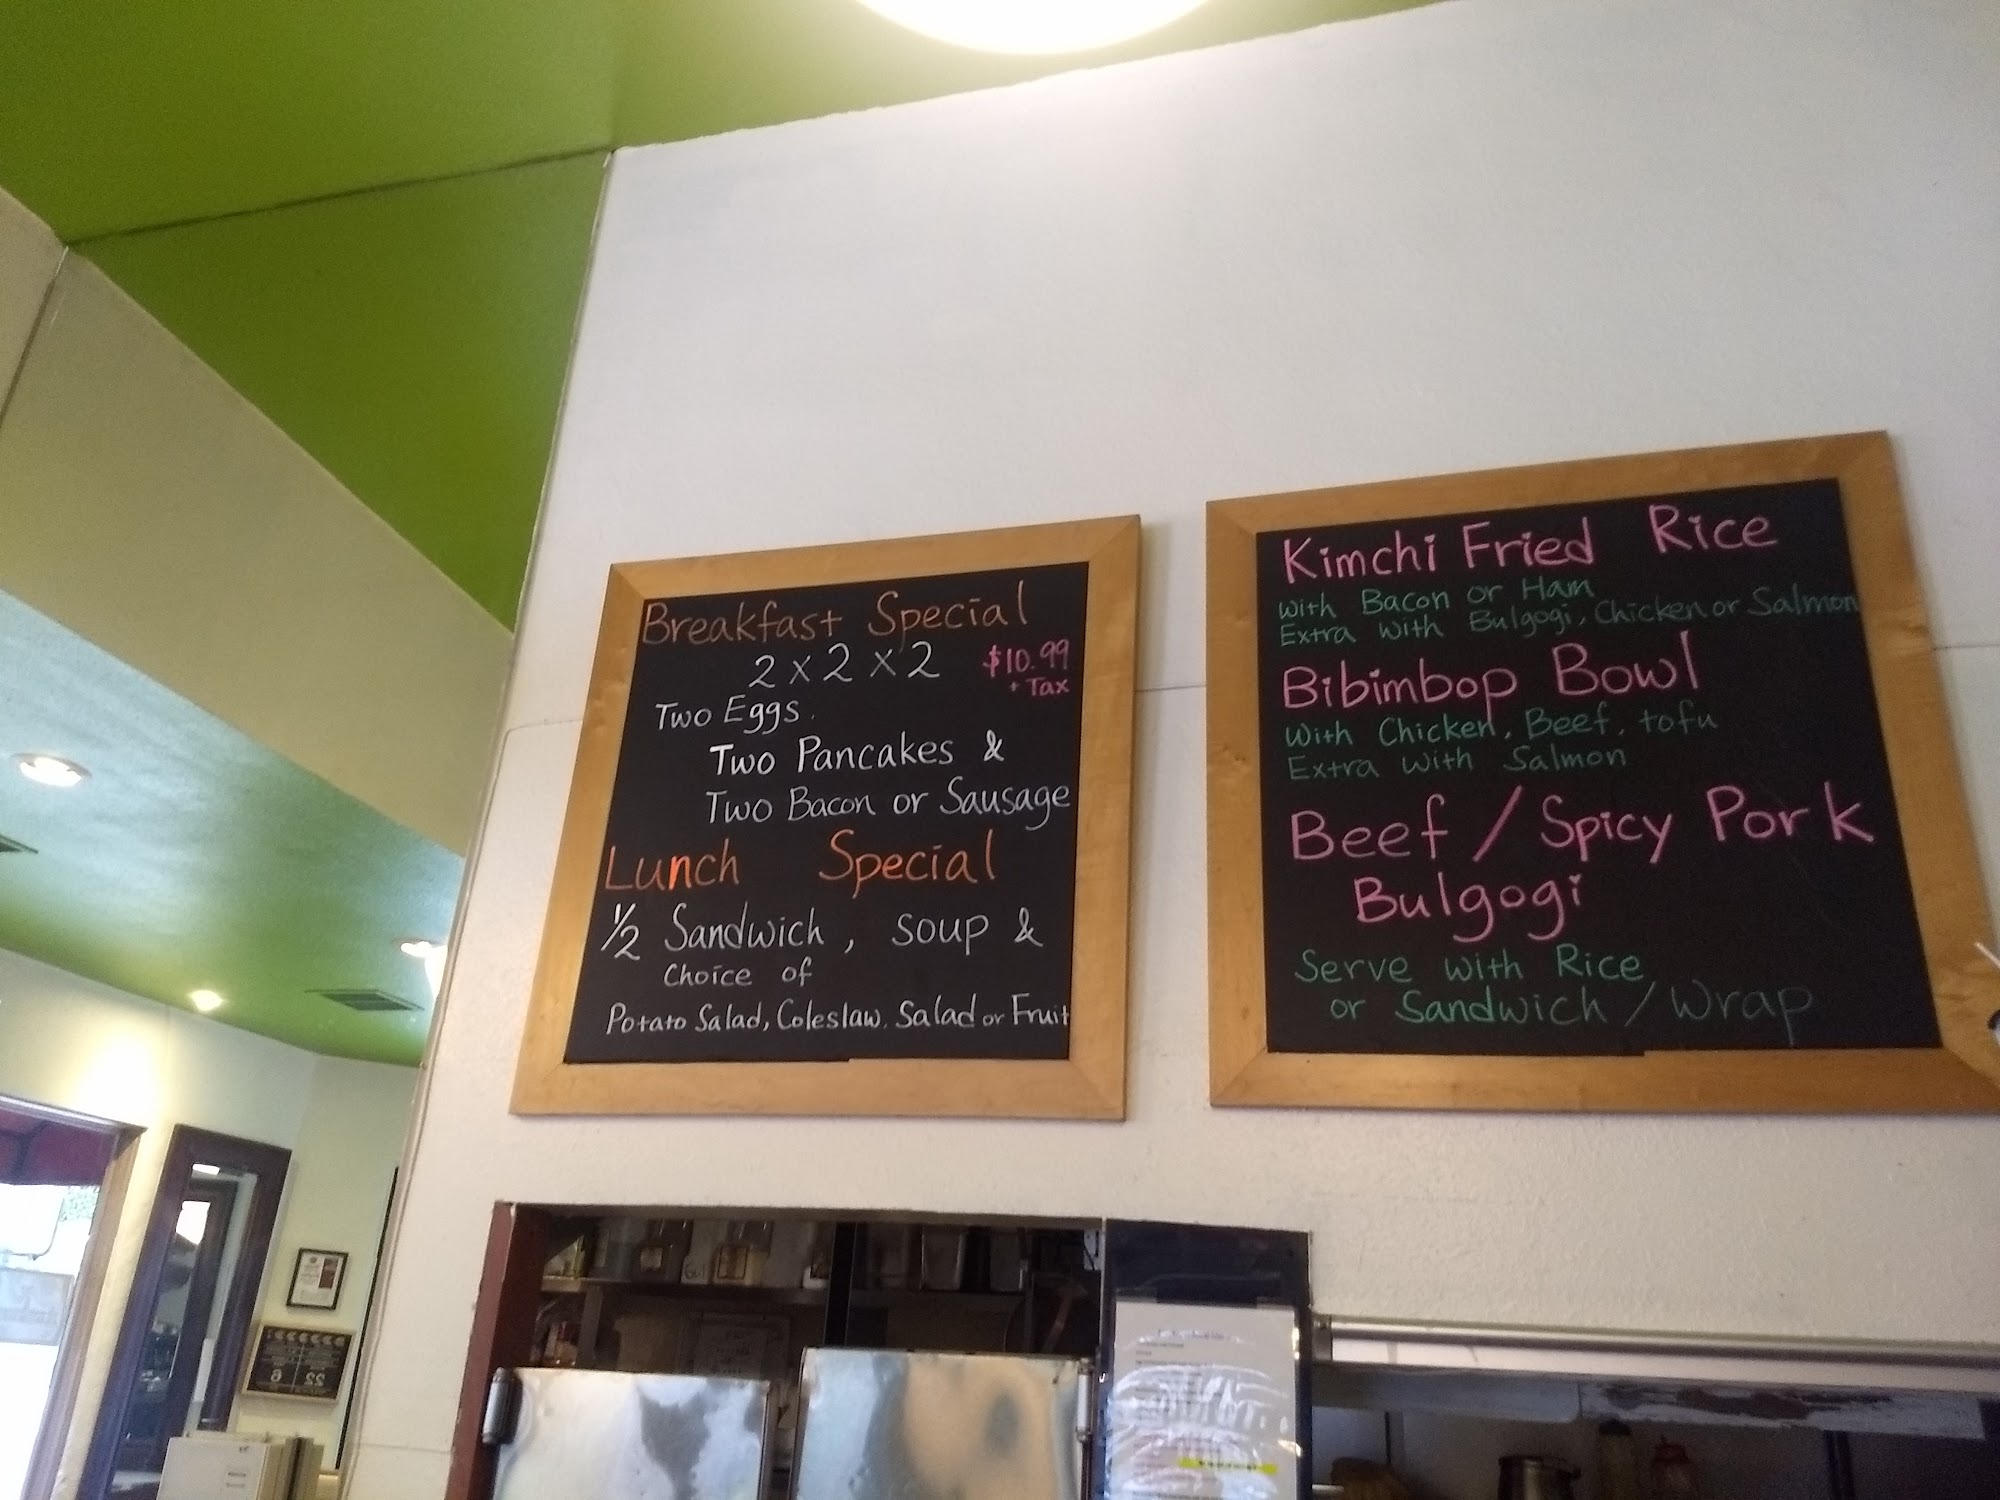 Breakfast Special
2 x 2 x 2 $10.99
+ Tax
Two Eggs.
Two Pancakes &
Two Bacon or Sausage
Lunch Special
1/2 Sandwich, soup &
Choice of
Potato Salad, Coleslaw, Salad or Fruit
Kimchi Fried Rice
with Bacon or Ham
Extra with Bulgogi, Chicken or Salmon
Bibimbop Bowl
with Chicken, Beef, tofu
Extra with Salmon
Beef / Spicy Pork
Bulgogi
Serve with Rice
or Sandwich / Wrap